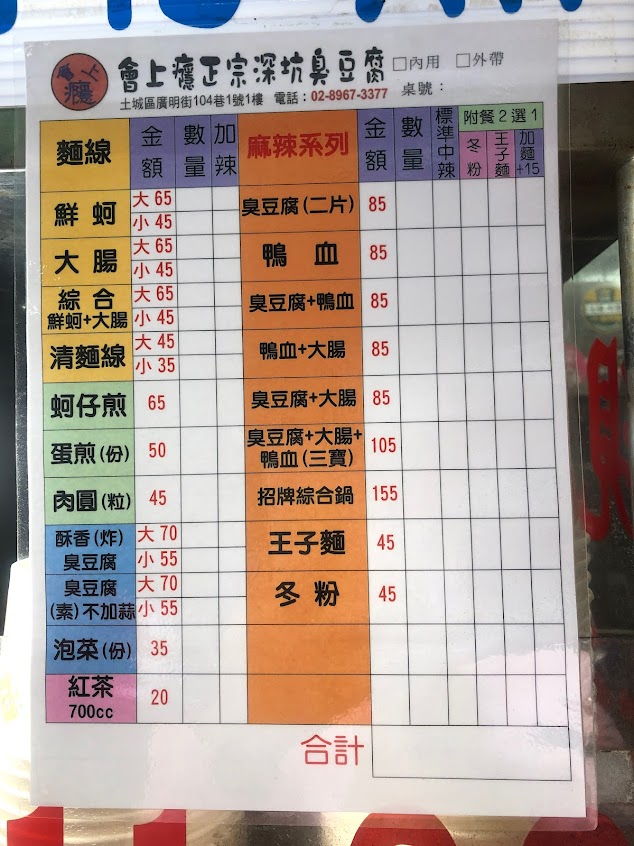 會上癮
會上癮正宗深坑臭豆腐 □內用 □外帶
土城區廣明街104巷1號1樓 電話：02-8967-3377 桌號：
麵線 金額 數量 加辣 麻辣系列 金額 數量 標準中辣 附餐2選1
冬粉 王子麵 加麵+15
鮮蚵 大 65 小 45 臭豆腐(二片) 85
大腸 大 65 小 45 鴨血 85
綜合 鮮蚵+大腸 大 65 小 45 臭豆腐+鴨血 85
清麵線 大 45 小 35 鴨血+大腸 85
蚵仔煎 65 臭豆腐+大腸 85
蛋煎(份) 50 臭豆腐+大腸+鴨血(三寶) 105
肉圓(粒) 45 招牌綜合鍋 155
酥香(炸)臭豆腐 大 70 小 55 王子麵 45
臭豆腐(素)不加蒜 大 70 小 55 冬粉 45
泡菜(份) 35
紅茶 700cc 20
合計